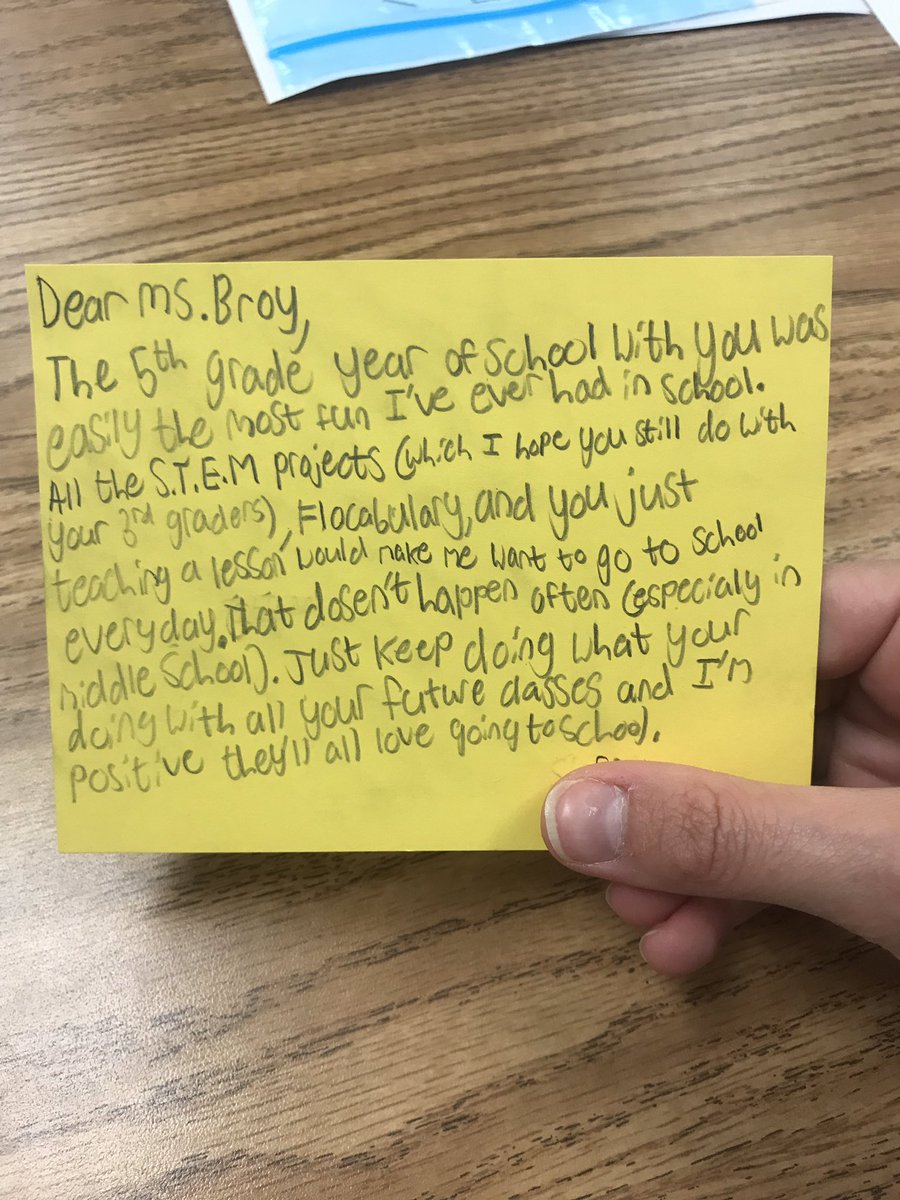 Dear Ms. Broy,
The 5th grade year of school with you was
easily the most fun I've ever had in school.
All the S.T.E.M projects (which I hope you still do with
your 3rd graders), Flocabulary, and you just
teaching a lesson would make me want to go to school
everyday. That dosen't happen often (especialy in
middle school). Just keep doing what your
doing with all your future classes and I'm
positive they'll all love going to school.